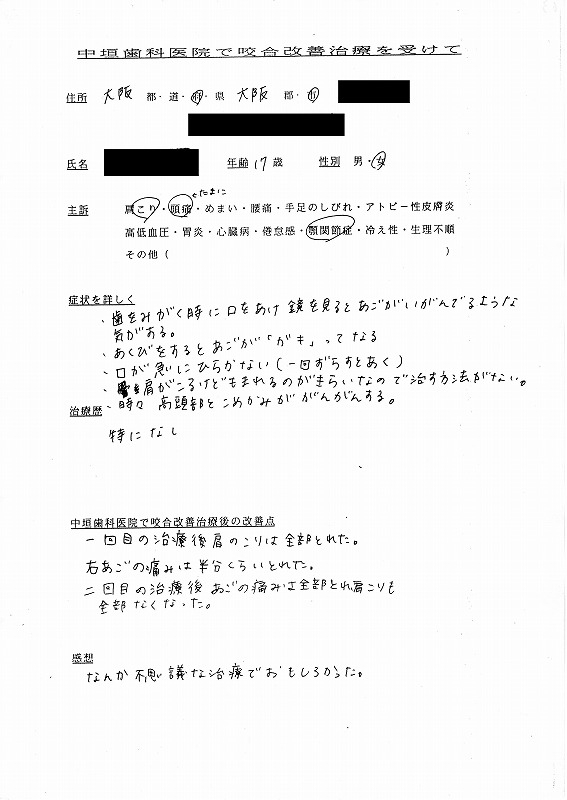 中垣歯科医院で咬合改善治療を受けて
住所 大阪 都・道・府・県 大阪 郡・市
氏名 年齢 17歳 性別 男・女
←たまに
主訴 肩こり・頭痛・めまい・腰痛・手足のしびれ・アトピー性皮膚炎
高低血圧・胃炎・心臓病・倦怠感・顎関節症・冷え性・生理不順
その他( )
症状を詳しく
・歯をみがく時に口をあけ鏡を見るとあごがいがんでるような
気がする。
・あくびをするとあごが「ガキ」ってなる
・口が急にひらかない(一回ずらすとあく)
・肩がこるけどもまれるのがきらいなので治す方法がない。
・時々 高頭部とこめかみががんがんする。
治療歴
特になし
中垣歯科医院で咬合改善治療後の改善点
一回目の治療後肩のこりは全部とれた。
右あごの痛みは半分くらいとれた。
二回目の治療後あごの痛みは全部とれ肩こりも
全部なくなった。
感想
なんか不思議な治療でおもしろかった。